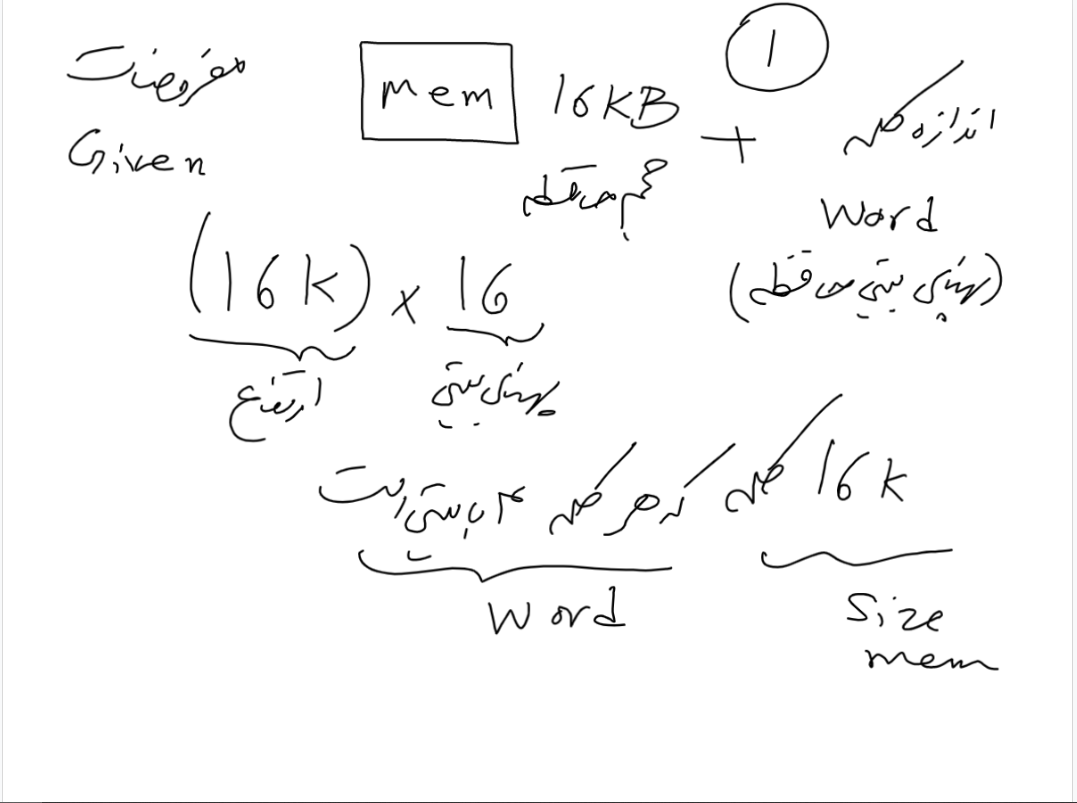 1
مفروضات
Given
mem 16KB + اندازه کلمه
حجم حافظه
Word
(پهنای بیتی حافظه)
(16k) x 16
ارتفاع پهنای بیتی
16k کلمه که هر کلمه ۴ بایتی است
Word
Size
mem